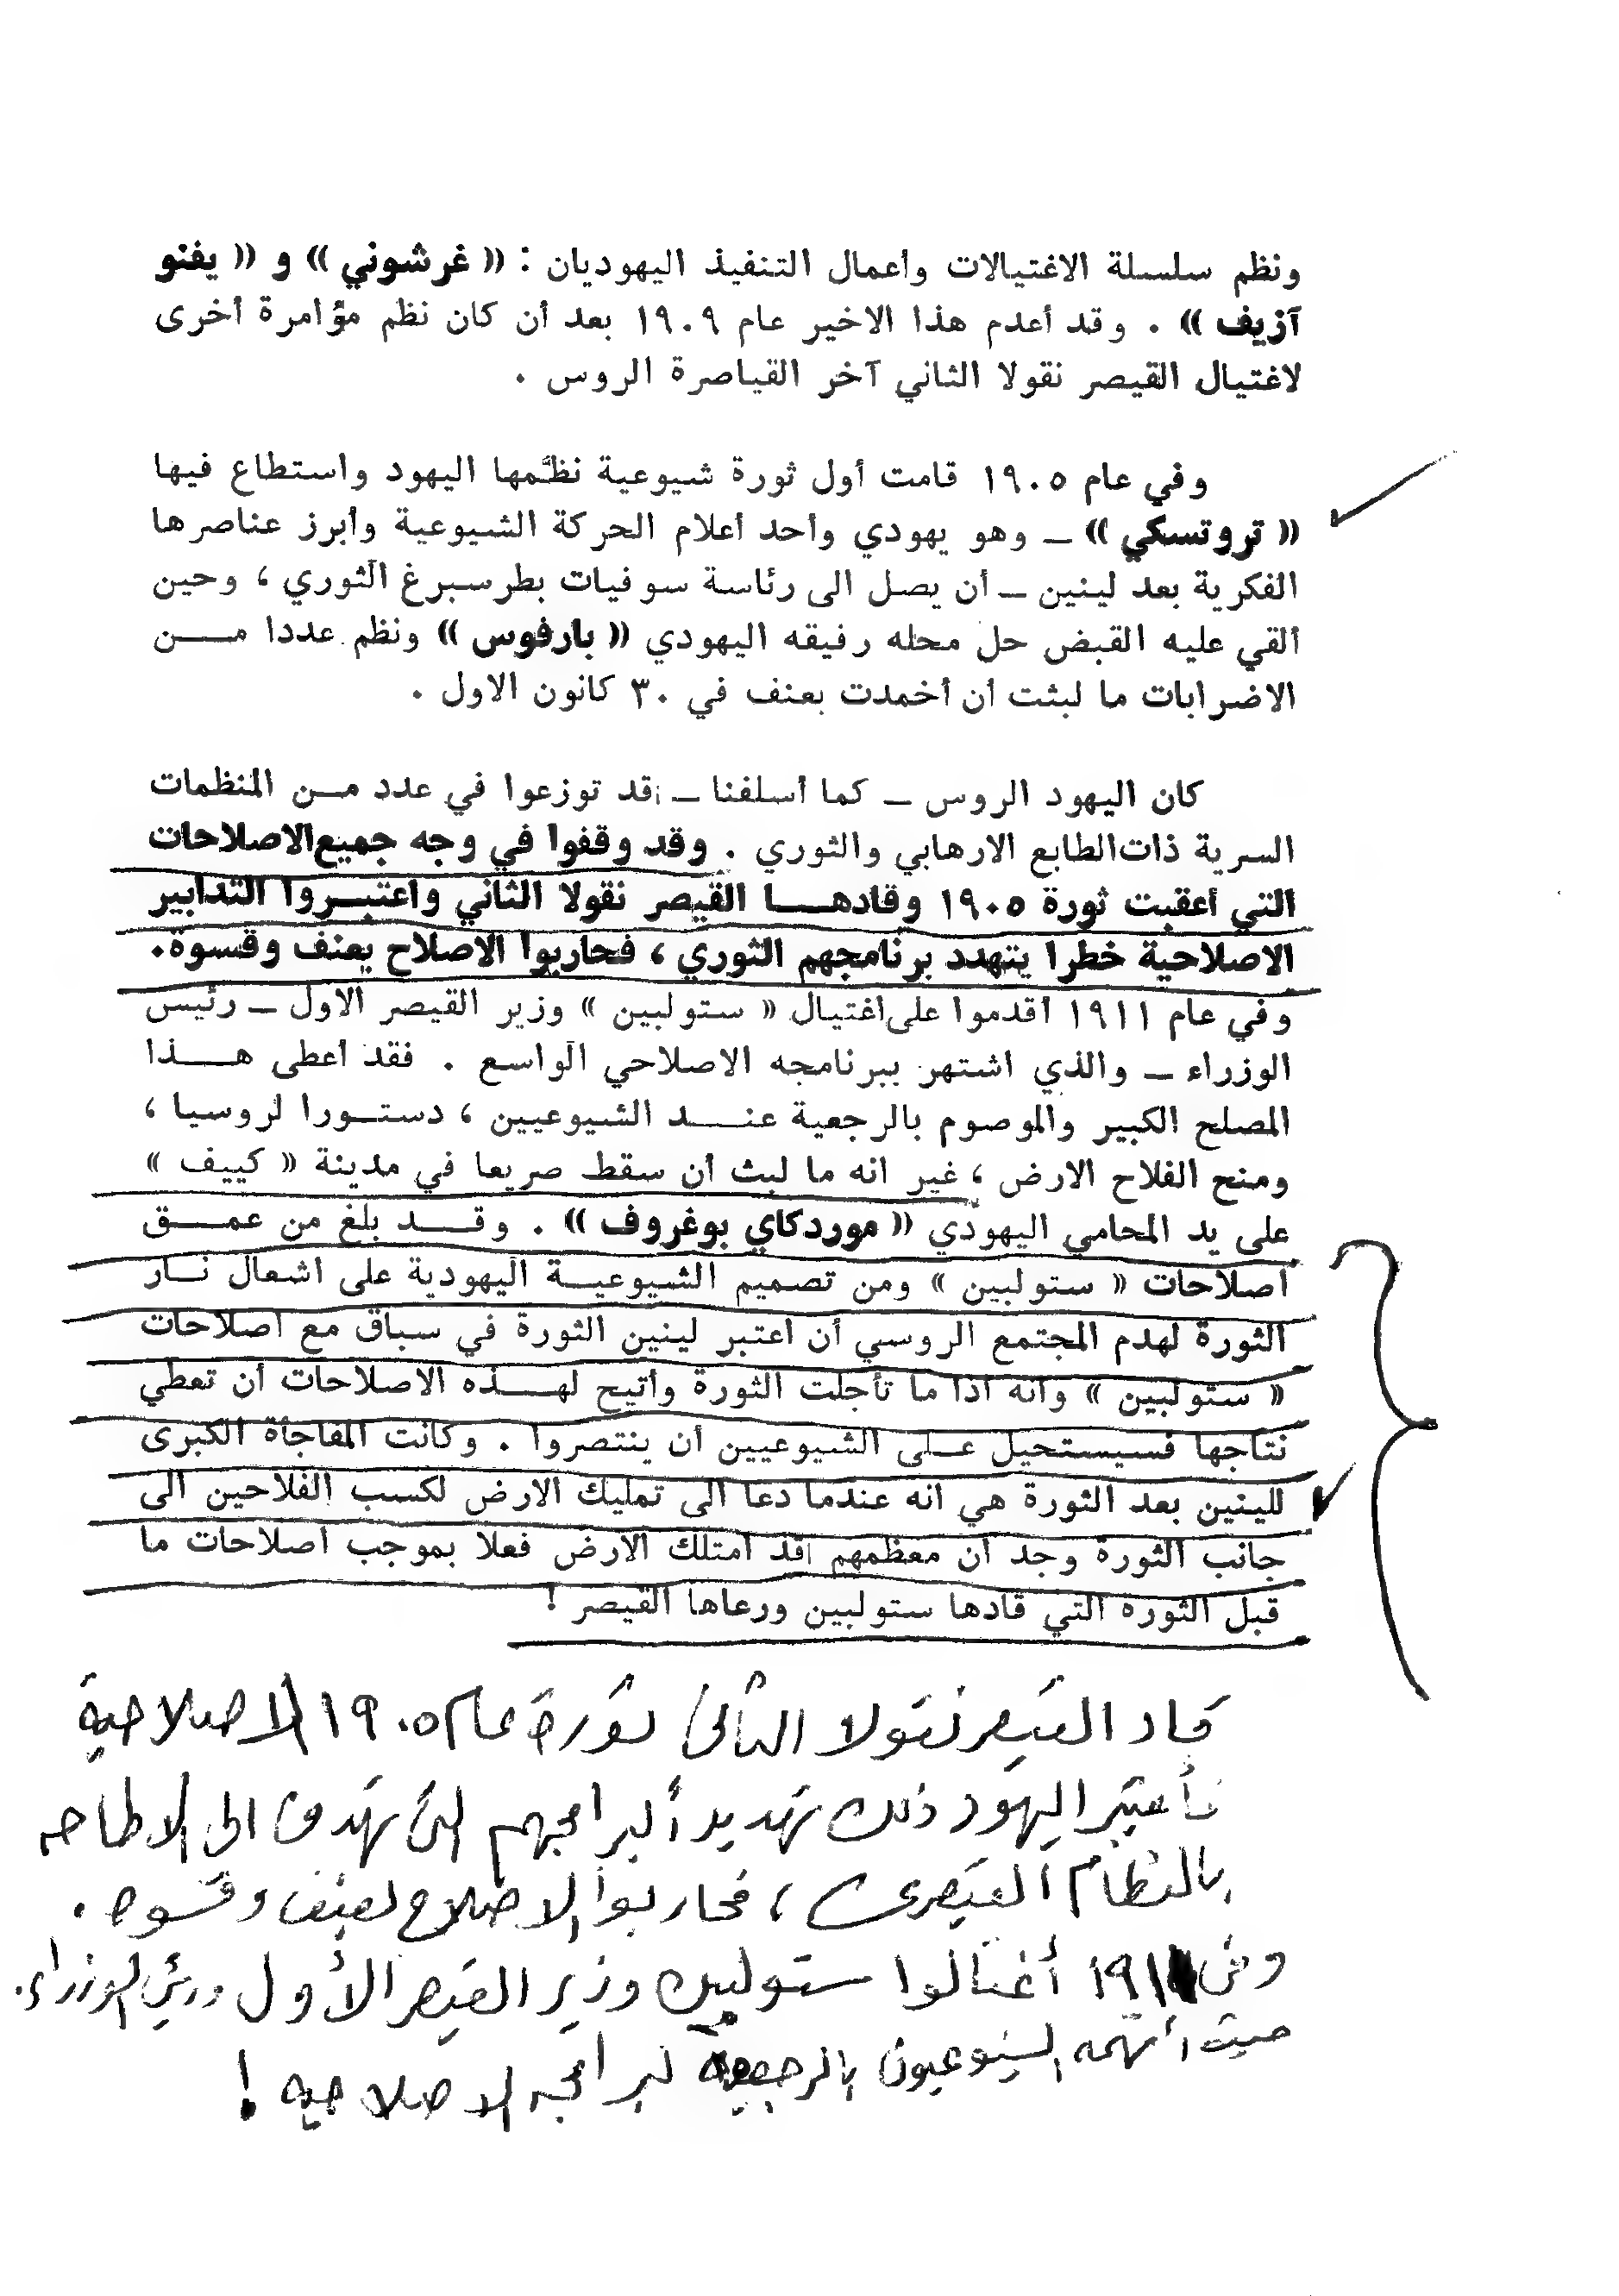 ونظم سلسلة الاغتيالات وأعمال التنفيذ اليهوديان : « غرشوني » و « يفنو
آزيف » . وقد أعدم هذا الاخير عام ١٩٠٩ بعد أن كان نظم مؤامرة أخرى
لاغتيال القيصر نقولا الثاني آخر القياصرة الروس .
وفي عام ١٩٠٥ قامت أول ثورة شيوعية نظّمها اليهود واستطاع فيها
« تروتسكي » ــ وهو يهودي وأحد أعلام الحركة الشيوعية وأبرز عناصرها
الفكرية بعد لينين ــ أن يصل الى رئاسة سوفيات بطرسبرغ الثوري ، وحين
ألقي عليه القبض حل محله رفيقه اليهودي « بارفوس » ونظم عددا مــن
الاضرابات ما لبثت أن أخمدت بعنف في ٣٠ كانون الاول .
كان اليهود الروس ــ كما أسلفنا ــ قد توزعوا في عدد مــن المنظمات
السرية ذات الطابع الارهابي والثوري . وقد وقفوا في وجه جميع الاصلاحات
التي أعقبت ثورة ١٩٠٥ وقادهــا القيصر نقولا الثاني واعتبــروا التدابير
الاصلاحية خطرا يتهدد برنامجهم الثوري ، فحاربوا الاصلاح بعنف وقسوة.
وفي عام ١٩١١ أقدموا على اغتيال « ستولبين » وزير القيصر الاول ــ رئيس
الوزراء ــ والذي اشتهر ببرنامجه الاصلاحي الواسع . فقد أعطى هــذا
المصلح الكبير والموصوم بالرجعية عنــد الشيوعيين ، دستــورا لروسيا ،
ومنح الفلاح الارض ، غير انه ما لبث أن سقط صريعا في مدينة « كييف »
على يد المحامي اليهودي « موردكاي بوغروف » . وقــد بلغ من عمــق
اصلاحات « ستولبين » ومن تصميم الشيوعيــة اليهودية على اشعال نــار
الثورة لهدم المجتمع الروسي أن اعتبر لينين الثورة في سباق مع اصلاحات
« ستولبين » وانه اذا ما تأجلت الثورة وأتيح لهــذه الاصلاحات أن تعطي
نتاجها فسيستحيل علــى الشيوعيين أن ينتصروا . وكانت المفاجأة الكبرى
للينين بعد الثورة هي انه عندما دعا الى تمليك الارض لكسب الفلاحين الى
جانب الثورة وجد أن معظمهم قد امتلك الارض فعلا بموجب اصلاحات ما
قبل الثورة التي قادها ستولبين ورعاها القيصر !
قاد القيصر نقولا الثاني ثورة عام ١٩٠٥ الاصلاحية
فأعتبر اليهود ذلك تهديد ألبرامجهم التي تهدف الى الاطاحه
بالنظام القيصرى ، فحاربوا الاصلاح بعنف وقسوه .
وفى ١٩١١ أغتالوا ستولبين وزير القيصر الأول ورئيس الوزراء.
حيث أتهمه الشيوعيون بالرجعية لبرامجه الاصلاحيه !